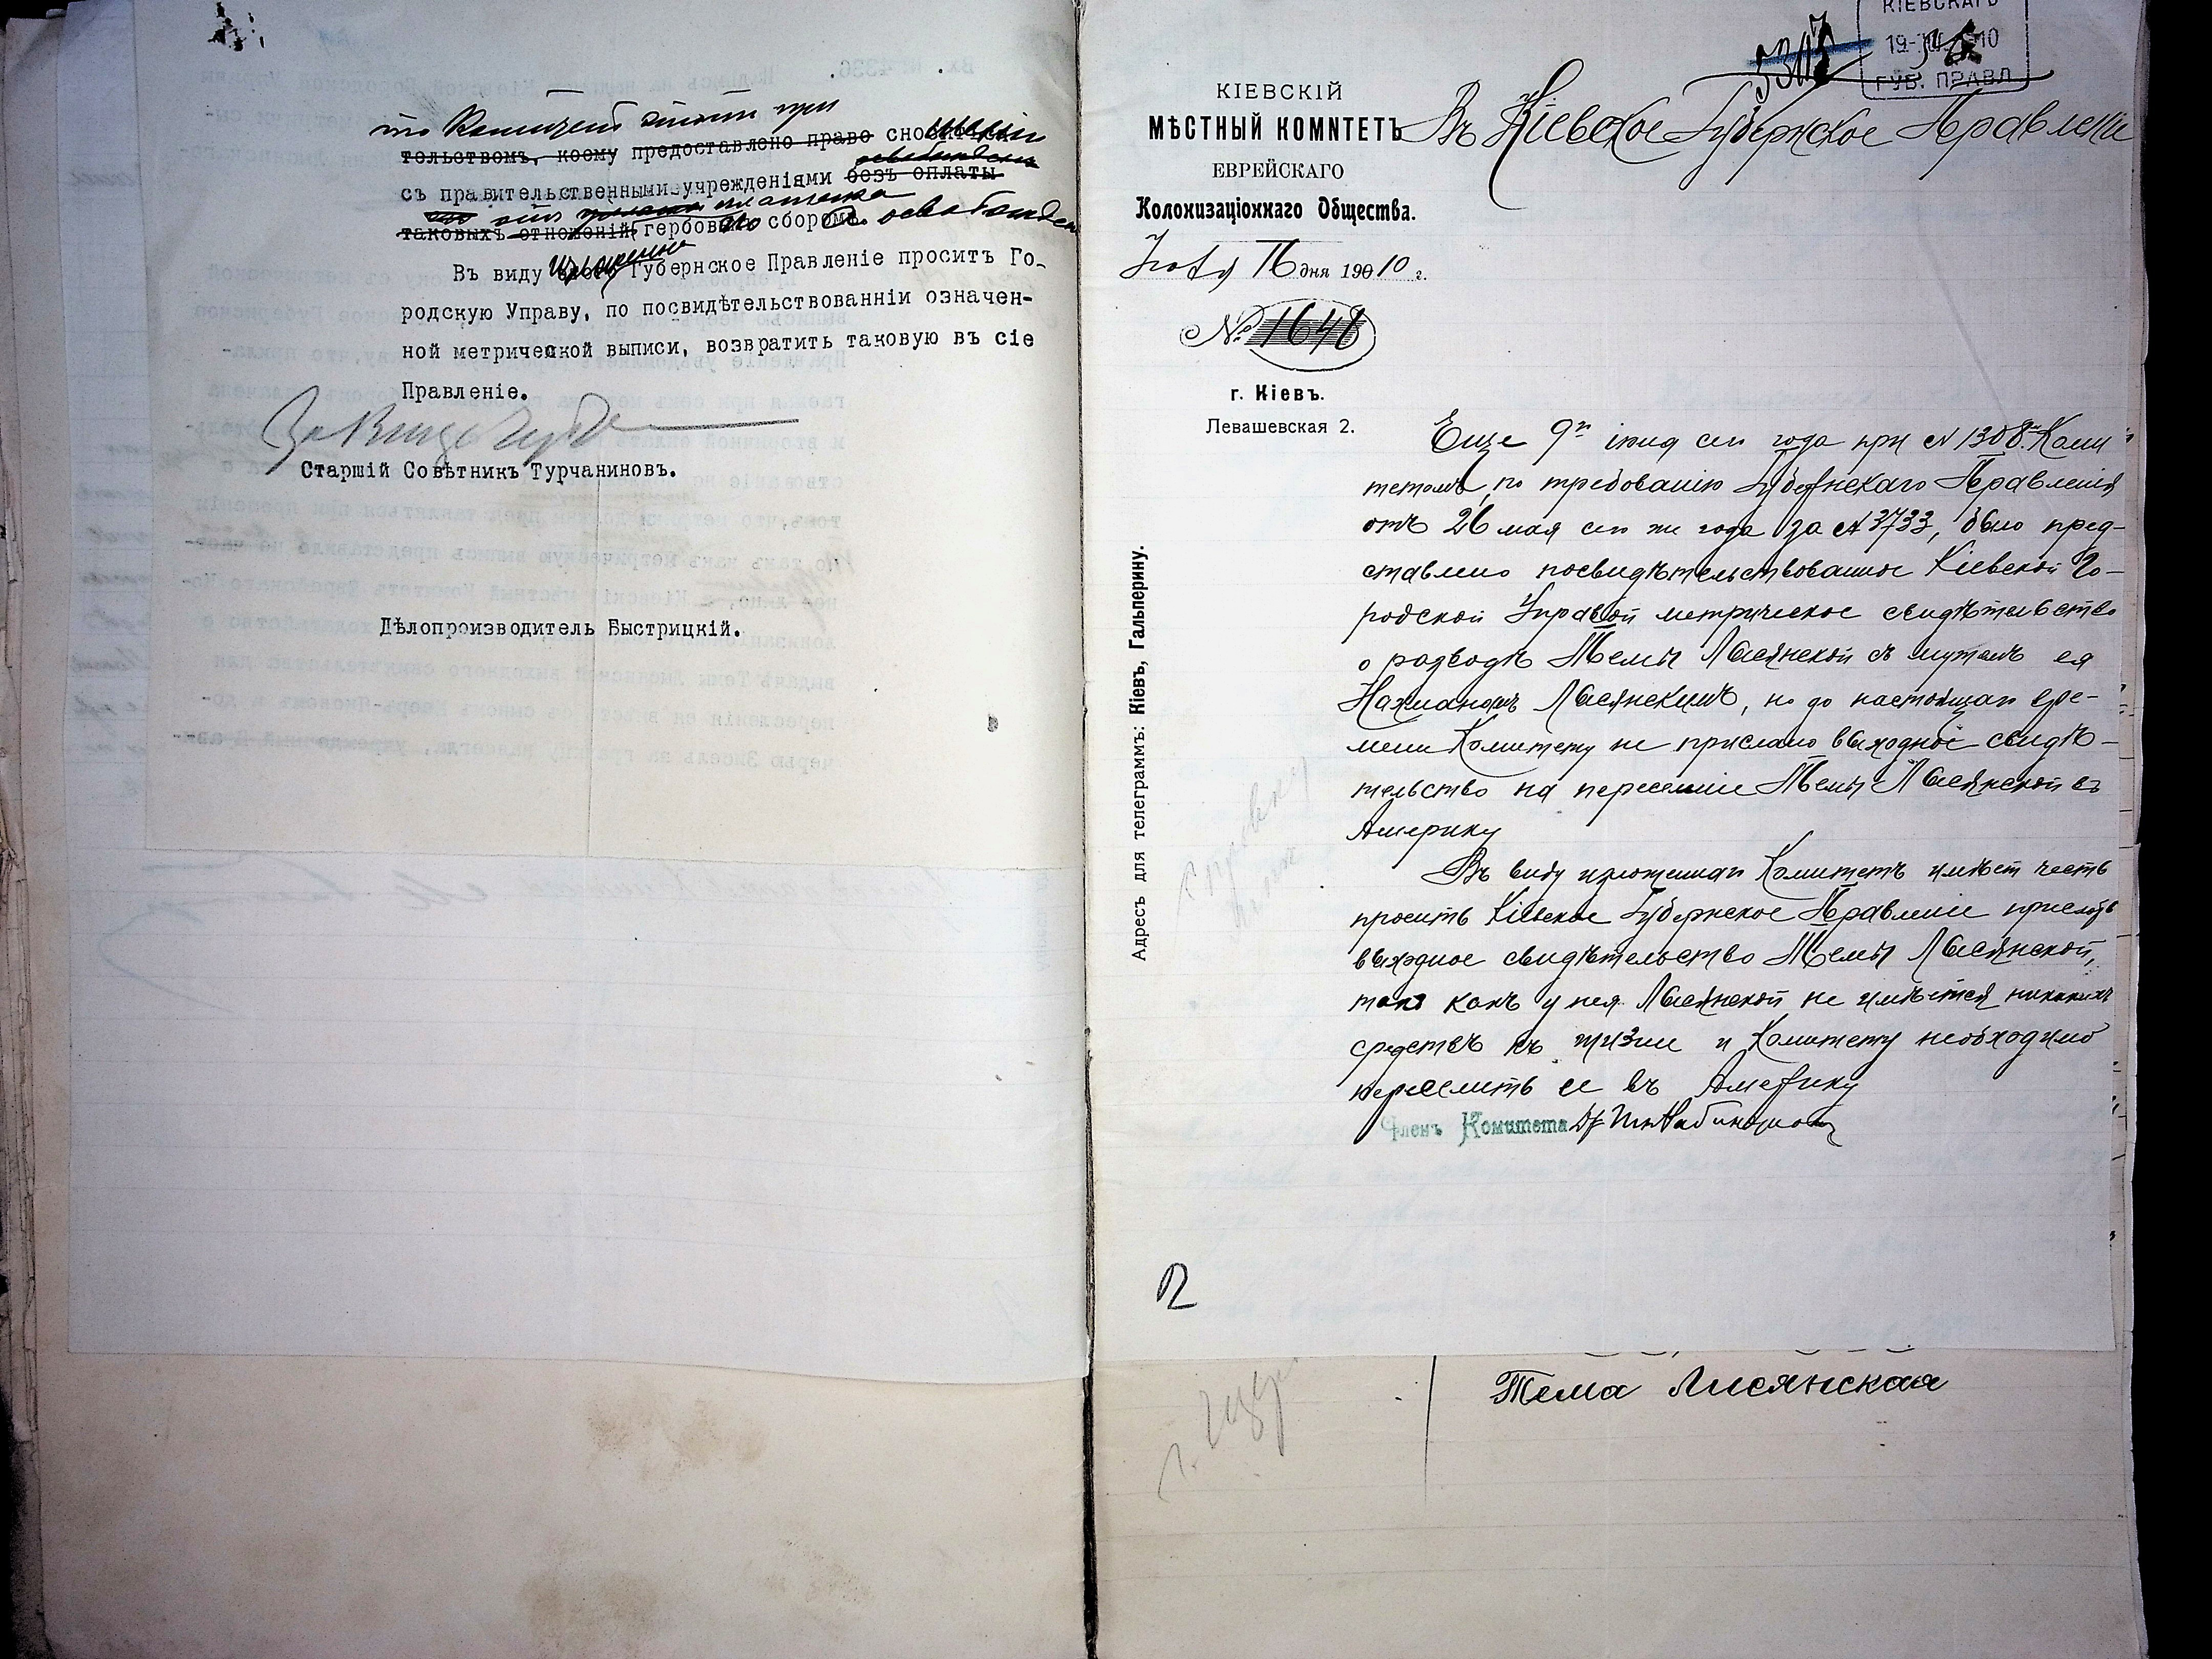 то Комитетъ
тельствомъ, коему предоставлено право
съ правительственными учрежденіями безъ оплаты
таковыхъ отношеній гербоваго сбора.
Въ виду Губернское Правленіе проситъ Го-
родскую Управу, по посвидѣтельствованіи означен-
ной метрической выписи, возвратить таковую въ сіе
Правленіе.
Старшій Совѣтникъ Турчаниновъ.
Дѣлопроизводитель Быстрицкій.
КІЕВСКАГО
19- 10
ГУБ. ПРАВЛ
КІЕВСКІЙ
МѢСТНЫЙ КОМИТЕТЪ
ЕВРЕЙСКАГО
Колонизаціоннаго Общества.
Іюля 16 дня 1910 г.
№ 1648
г. Кіевъ.
Левашевская 2.
Адресъ для телеграммъ: Кіевъ, Гальперину.
Въ Кіевское Губернское Правленіе
Еще 9го іюня сего года при № 1308 Коми
тетомъ, по требованію Губернскаго Правленія
отъ 26 мая сего же года за №3733, было пред-
ставлено посвидѣтельствованное Кіевской Го-
родской Управой метрическое свидѣтельство
о разводѣ Темы Лисянской съ мужемъ ея
Нахманомъ Лисянскимъ, но до настоящаго вре-
мени Комитету не прислано выходное свидѣ-
тельство на переселеніе Темы Лисянской въ
Америку
Въ виду изложеннаго Комитетъ имѣетъ честь
просить Кіевское Губернское Правленіе прислать
выходное свидѣтельство Темы Лисянской,
такъ какъ у нея Лисянской не имѣется никакихъ
средствъ къ жизни и Комитету необходимо
переселить ее въ Америку
Членъ Комитета
Тема Лисянская